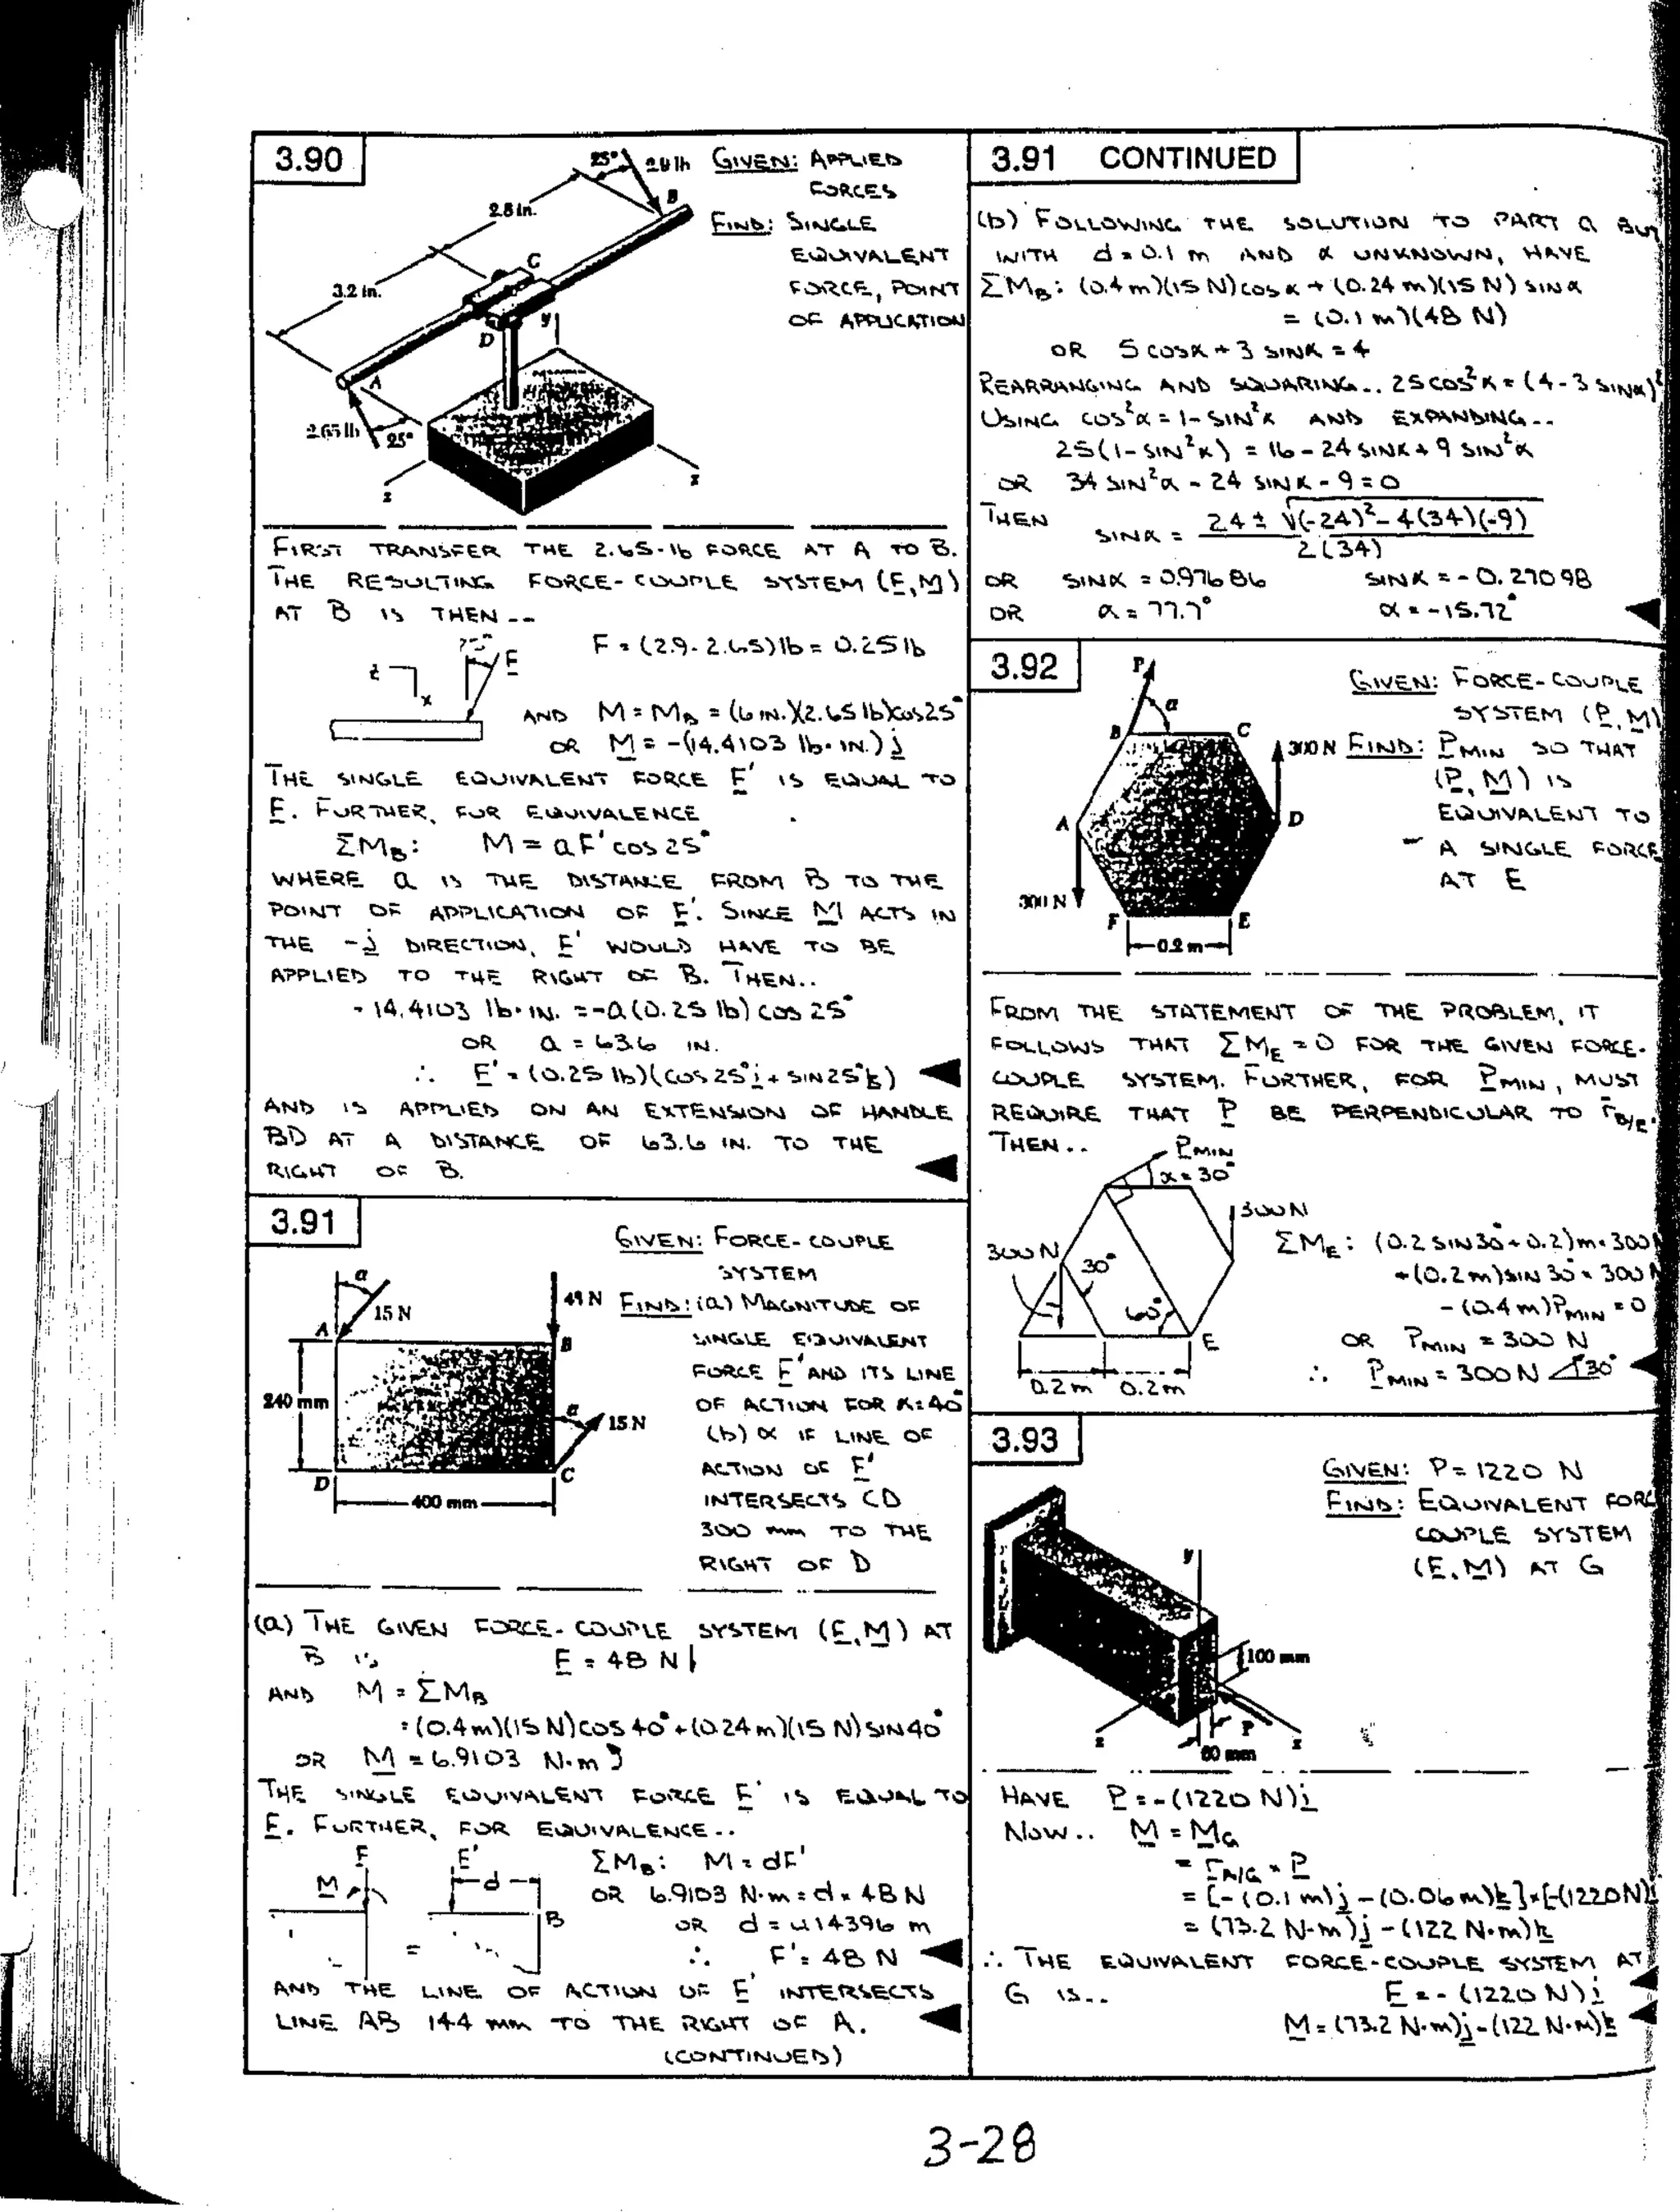 3.90
25°
2.9 lb
B
2.8 in.
C
3.2 in.
D
y
A
2.65 lb
25°
z
x
GIVEN: APPLIED
FORCES
FIND: SINGLE
EQUIVALENT
FORCE, POINT
OF APPLICATION
FIRST TRANSFER THE 2.65-lb FORCE AT A TO B.
THE RESULTING FORCE-COUPLE SYSTEM (F,M)
AT B IS THEN --
25°
F
z
x
F = (2.9-2.65)lb = 0.25 lb
AND M = MB = (6 IN.)(2.65 lb)cos25°
OR M = -(14.4103 lb·IN.) j
THE SINGLE EQUIVALENT FORCE F' IS EQUAL TO
F. FURTHER, FOR EQUIVALENCE
ΣMB: M = aF'cos25°
WHERE a IS THE DISTANCE FROM B TO THE
POINT OF APPLICATION OF F'. SINCE M ACTS IN
THE -j DIRECTION, F' WOULD HAVE TO BE
APPLIED TO THE RIGHT OF B. THEN..
-14.4103 lb·IN. = -a(0.25 lb) cos 25°
OR a = 63.6 IN.
∴ F' = (0.25 lb)(cos25°i + SIN25°k)
AND IS APPLIED ON AN EXTENSION OF HANDLE
BD AT A DISTANCE OF 63.6 IN. TO THE
RIGHT OF B.
3.91
α
15 N
48 N
A
B
240 mm
α
15 N
D
C
400 mm
GIVEN: FORCE-COUPLE
SYSTEM
FIND: (a) MAGNITUDE OF
SINGLE EQUIVALENT
FORCE F' AND ITS LINE
OF ACTION FOR α=40°
(b) α IF LINE OF
ACTION OF F'
INTERSECTS CD
300 mm TO THE
RIGHT OF D
(a) THE GIVEN FORCE-COUPLE SYSTEM (F,M) AT
B IS F = 48 N↓
AND M = ΣMB
= (0.4m)(15 N)cos 40° + (0.24m)(15 N) SIN40°
OR M = 6.9103 N·m ↺
THE SINGLE EQUIVALENT FORCE F' IS EQUAL TO
F. FURTHER, FOR EQUIVALENCE..
F
M
=
F'
d
B
ΣMB: M = dF'
OR 6.9103 N·m = d × 48 N
OR d = 0.14396 m
∴ F' = 48 N
AND THE LINE OF ACTION OF F' INTERSECTS
LINE AB 144 mm TO THE RIGHT OF A.
(CONTINUED)
3.91 CONTINUED
(b) FOLLOWING THE SOLUTION TO PART a BUT
WITH d = 0.1 m AND α UNKNOWN, HAVE
ΣMB: (0.4 m)(15 N)cos α + (0.24 m)(15 N) SIN α
= (0.1 m)(48 N)
OR 5 cosα + 3 SINα = 4
REARRANGING AND SQUARING.. 25 cos²α = (4-3 SINα)²
USING cos²α = 1-SIN²α AND EXPANDING--
25(1-SIN²α) = 16-24 SINα + 9 SIN²α
OR 34 SIN²α - 24 SINα - 9 = 0
THEN SINα = 24 ± √(-24)²-4(34)(-9)
2(34)
OR SINα = 0.97686 SINα = -0.27098
OR α = 77.7° α = -15.72°
3.92
P
α
B
C
300 N
A
D
300 N
F
E
0.2 m
GIVEN: FORCE-COUPLE
SYSTEM (P,M)
FIND: PMIN SO THAT
(P,M) IS
EQUIVALENT TO
A SINGLE FORCE
AT E
FROM THE STATEMENT OF THE PROBLEM, IT
FOLLOWS THAT ΣME = 0 FOR THE GIVEN FORCE-
COUPLE SYSTEM. FURTHER, FOR PMIN, MUST
REQUIRE THAT P BE PERPENDICULAR TO rB/E.
THEN..
PMIN
α = 30°
300 N
300 N
30°
60°
E
0.2 m 0.2 m
ΣME: (0.2 SIN30°+0.2)m×300N
+(0.2m)SIN 30°×300 N
-(0.4 m)PMIN = 0
OR PMIN = 300 N
∴ PMIN = 300 N ∠30°
3.93
y
100 mm
P
z
x
60 mm
GIVEN: P = 1220 N
FIND: EQUIVALENT FORCE
COUPLE SYSTEM
(F,M) AT G
HAVE P = -(1220 N)i
NOW.. M = MG
= rA/G × P
= [-(0.1 m)j -(0.06 m)k]×[-(1220N)i]
= (73.2 N·m)j -(122 N·m)k
∴ THE EQUIVALENT FORCE-COUPLE SYSTEM AT
G IS.. F = -(1220 N)i
M = (73.2 N·m)j -(122 N·m)k
3-28